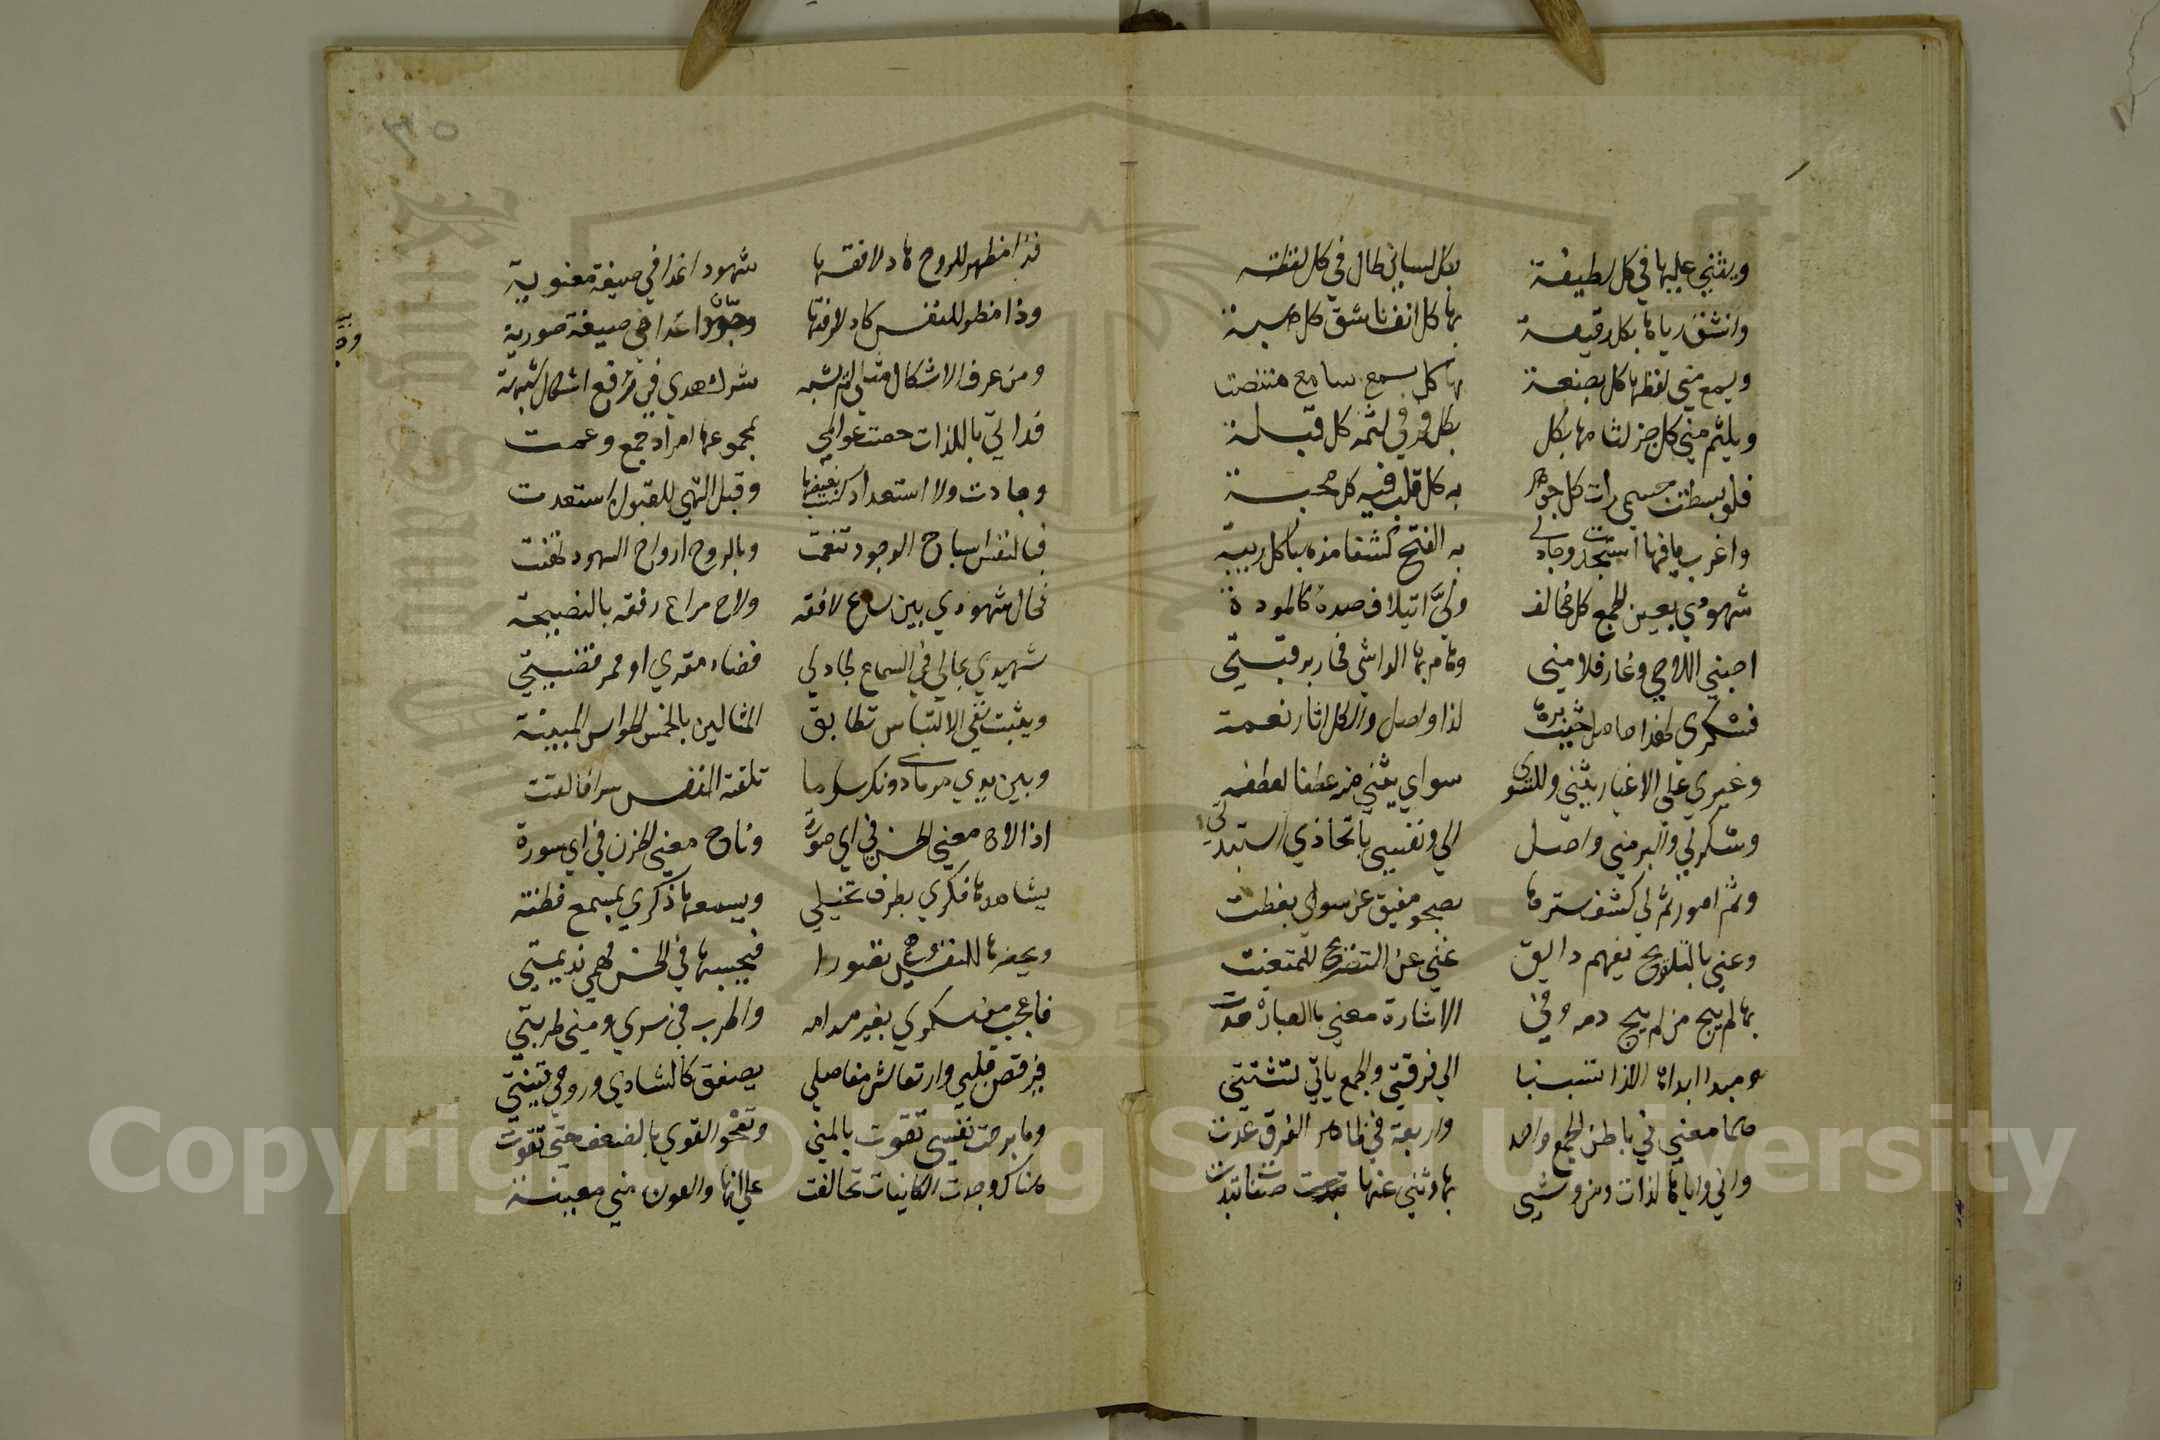 ويثني عليها في كل لطيفة بكل لسان طال في كل لفظة
وانشق رياها بكل رقيقة بها كل انف ناشق كل هبة
ويسمع مني لفظها كل بضعة بها كل سمع سامع متنصت
ويلثم مني كل جز لثامها بكل فم في لثمه كل قبلة
فلو بسطت جسمي رات كل جوهر به كل قلب فيه كل محبة
واغرب ما فيها استجدت وجاد لي به الفتح كشفا مذهبا كل ريبة
شهودي بعين الجمع كل مخالف ولي ائتلاف صده كالمودة
احبني اللاحي وغار فلامني وهام بها الواشي فجار برقبتي
فشكري لهذا حاصل حيث برها لذا واصل والكل اثار نعمت
وغيري علي الاغيار يثني وللسوي سواي يثني منه عطفا لعطفه
وشكري لي والبر مني واصل الي ونفسي باتحادي استبدت
وثم امور تم لي كشف سترها بصحو مفيق عن سواي بغطت
وعني بالتلويح يفهم ذايق غني عن التصريح للمتعنت
بها لم يبح من لم يبح دمه وفي الاشارة معني ما العبارة حدت
ومبدا ابداها اللذا تسببا الي فرقتي والجمع يابي تشتتي
هما معني في باطن الجمع واحد واربعة في ظاهر الفرق عدت
واني واياها لذات ومن وشي بها وثني عنها صفات تبدت
٣٥
فذا مظهر للروح هاد لافقها شهودا غدا في صيغة معنوية
وذا مظهر للنفس حاد لرفقها وجودا غدا في صيغة صورية
ومن عرف الاشكال مثلي لم يشبه شرك هدي في رفع اشكال شبهة
فذاتي باللذات خصت عوالمي بمجموعها امداد جمع وعمت
وجادت ولا استعداد كسب بفيضها وقبل التهي للقبول استعدت
فبالنفس اشباح الوجود تنعمت وبالروح ارواح الشهود تهنت
فحال شهودي بين ساع لافقه ولاح مراع رفقه بالنصيحة
شهيدي بحالي في السماع لجاذبي قضاء مقري او ممر قضيتي
ويثبت نفي الالتباس تطابق المثالين بالخمس الحواس المبينة
وبين يدي مرماي دونك سر ما تلقته النفس سرا فالقت
اذا لاح معني الحسن في اي صورة وناح معني الحزن في اي سورة
يشاهدها فكري بطرف تخيلي ويسمعها ذكري بمسمع فطنته
ويحضرها للنفس وهمي تصورا فيحسبها في الحس فهمي نديمتي
فاعجب من سكري بغير مدامه واطرب في سري ومني طربتي
فيرقص قلبي وارتعاش مفاصلي يصفق كالشادي وروحي قينتي
وما برحت نفسي تقوت بالمني وتمحو القوي بالضعف حتي تقوت
هناك وجدت الكاينات تحالفت علي انها والعون مني معينة
Copyright © King Saud University
King Saud University
1957